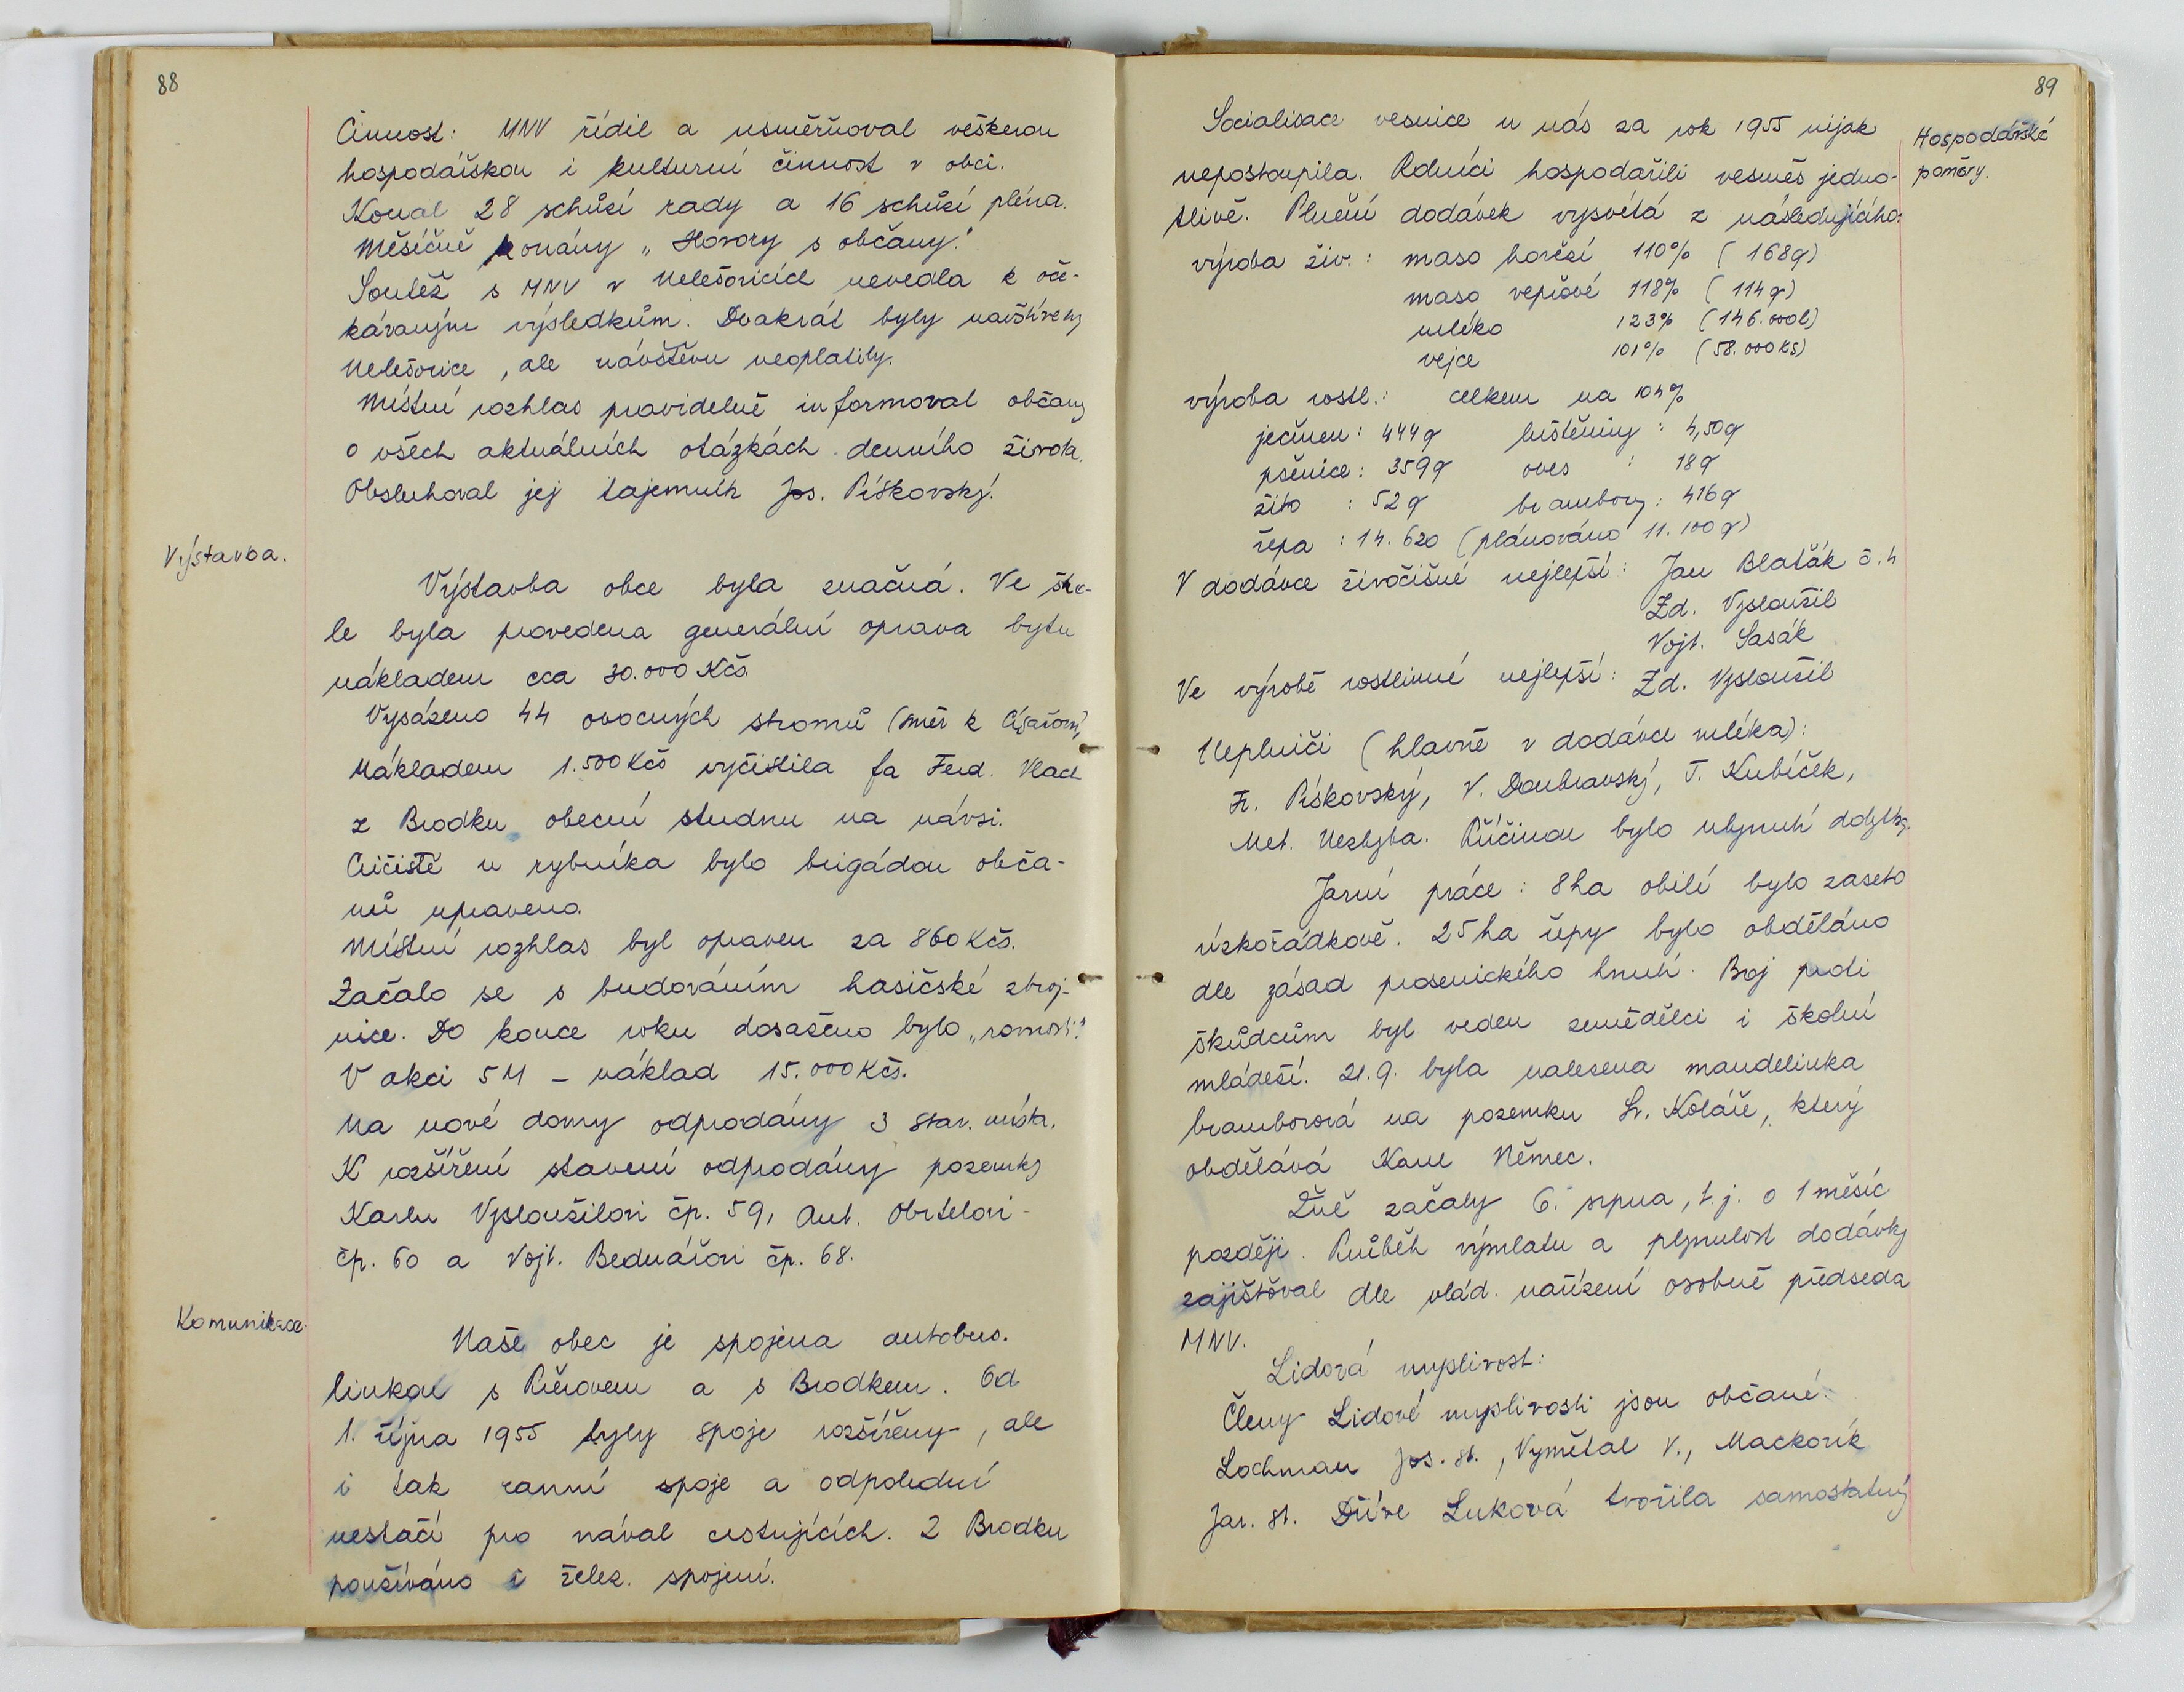 88
Činnost: MNV řídil a usměrňoval veškerou
hospodářskou i kulturní činnost v obci.
Konal 28 schůzí rady a 16 schůzí pléna.
Měsíčně konány „Hovory s občany."
Soutěž s MNV v Nelešovicích nevedla k oče-
kávaným výsledkům. Dvakrát byly navštíveny
Nelešovice, ale návštěvu neoplatily.
Místní rozhlas pravidelně informoval občany
o všech aktuálních otázkách denního života.
Obsluhoval jej tajemník Jos. Pískovský.
Výstavba.
Výstavba obce byla značná. Ve ško-
le byla provedena generální oprava bytu
nákladem cca 30.000 Kčs.
Vysázeno 44 ovocných stromů (směr k Císařovu),
Nákladem 1.500 Kčs vyčistila fa Ferd. Vlach
z Brodku obecní studnu na návsi.
Cvičiště u rybníka bylo brigádou obča-
nů upraveno.
Místní rozhlas byl opraven za 860 Kčs.
Začalo se s budováním hasičské zbroj-
nice. Do konce roku dosaženo bylo „rovnosti."
V akci 5M – náklad 15.000 Kčs.
Na nové domy odprodány 3 stav. místa.
K rozšíření stavení odprodány pozemky
Karlu Vysloužilovi čp. 59, Ant. Obrtelovi
čp. 60 a Vojt. Bednářovi čp. 68.
Komunikace.
Naše obec je spojena autobus.
linkou s Přerovem a s Brodkem. Od
1. října 1955 byly spoje rozšířeny, ale
i tak ranní spoje a odpolední
nestačí pro nával cestujících. Z Brodku
používáno i želez. spojení.
89
Hospodářské
poměry.
Socialisace vesnice u nás za rok 1955 nijak
nepostoupila. Rolníci hospodařili vesměs jedno-
tlivě. Plnění dodávek vysvítá z následujícího:
výroba živ.: maso hovězí 110% (168q)
maso vepřové 118% (114q)
mléko 123% (146.000l)
vejce 101% (58.000ks)
výroba rostl.: celkem na 104%
ječmen: 444q luštěniny: 4,50q
pšenice: 359q oves : 18q
žito : 52q brambory: 416q
řepa : 14.620 (plánováno 11.100q)
V dodávce živočišné nejlepší: Jan Blaťák č. 4
Zd. Vysloužil
Vojt. Sasák
Ve výrobě rostlinné nejlepší: Zd. Vysloužil
Neplniči (hlavně v dodávce mléka):
Fr. Pískovský, V. Doubravský, T. Kubíček,
Met. Nezhyba. Příčinou bylo uhynutí dobytka.
Jarní práce: 8ha obilí bylo zaseto
úzkořádkově. 25ha řepy bylo obděláno
dle zásad prosenického hnutí. Boj proti
škůdcům byl veden zemědělci i školní
mládeží. 21.9. byla nalezena mandelinka
bramborová na pozemku Fr. Koláře, který
obdělává Karel Němec.
Žně začaly 6. srpna, t.j. o 1 měsíc
později. Průběh výmlatu a plynulost dodávky
zajišťoval dle vlád. nařízení osobně předseda
MNV.
Lidová myslivost:
Členy Lidové myslivosti jsou občané:
Lochman Jos. st., Vymětal V., Mackovík
Jar. st. Dříve Luková tvořila samostatný